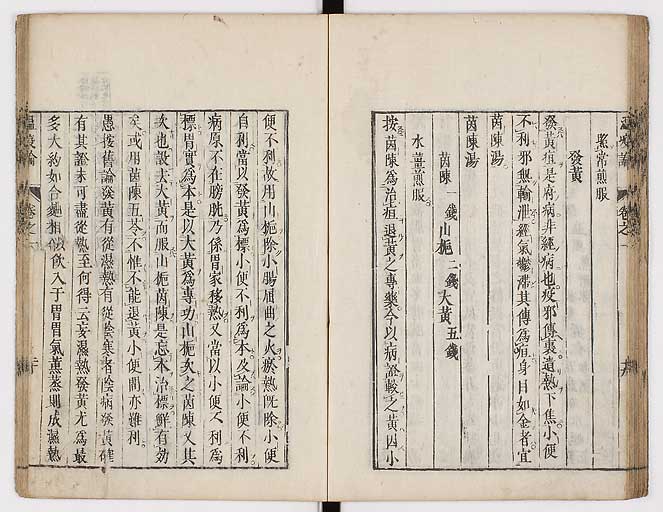 照常煎服
發黃
發黃疸是府病非經病也疫邪傳裏遺熱下焦小便
不利邪無輸泄經氣鬱滯其傳為疸身目如金者宜
茵陳湯
茵陳湯
茵陳一錢山梔二錢大黃五錢
水薑煎服
按茵陳為治疸退黃之專藥今以病證較之黃因小
便不利故用山梔除小腸屈曲之火瘀熱既除小便
自利當以發黃為標小便不利為本及論小便不利
病原不在膀胱乃係胃家移熱又當以小便不利為
標胃實為本是以大黃為專功山梔次之茵陳又其
次也設去大黃而服山梔茵陳是忘本治標鮮有効
矣或用茵陳五苓不惟不能退黃小便間亦難利
愚按舊論發黃有從濕熱有從陰寒者陰病發黃確
有其證未可盡從熱至何得云妄濕熱發黃尤為最
多大約如合麴相似飲入于胃胃氣薰蒸則成濕熱
溫疫論
卷之一